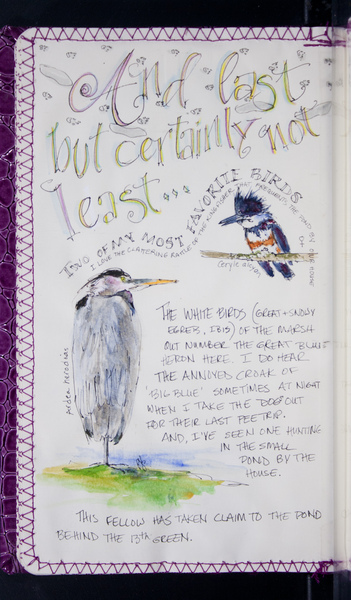 And last
but certainly not
least...
TWO OF MY MOST FAVORITE BIRDS
I LOVE THE CLATTERING RATTLE OF THE KINGFISHER
Ceryle alcyon
Ardea herodias
THE WHITE BIRDS (GREAT + SNOWY
EGRETS, IBIS) OF THE MARSH
OUT NUMBER THE GREAT BLUE
HERON HERE. I DO HEAR
THE ANNOYED CROAK OF
'BIG BLUE' SOMETIMES AT NIGHT
WHEN I TAKE THE DOG OUT
FOR THEIR LAST PEE TRIP.
AND, I'VE SEEN ONE HUNTING
IN THE SMALL
POND BY THE
HOUSE.
THIS FELLOW HAS TAKEN CLAIM TO THE POND
BEHIND THE 13th GREEN.